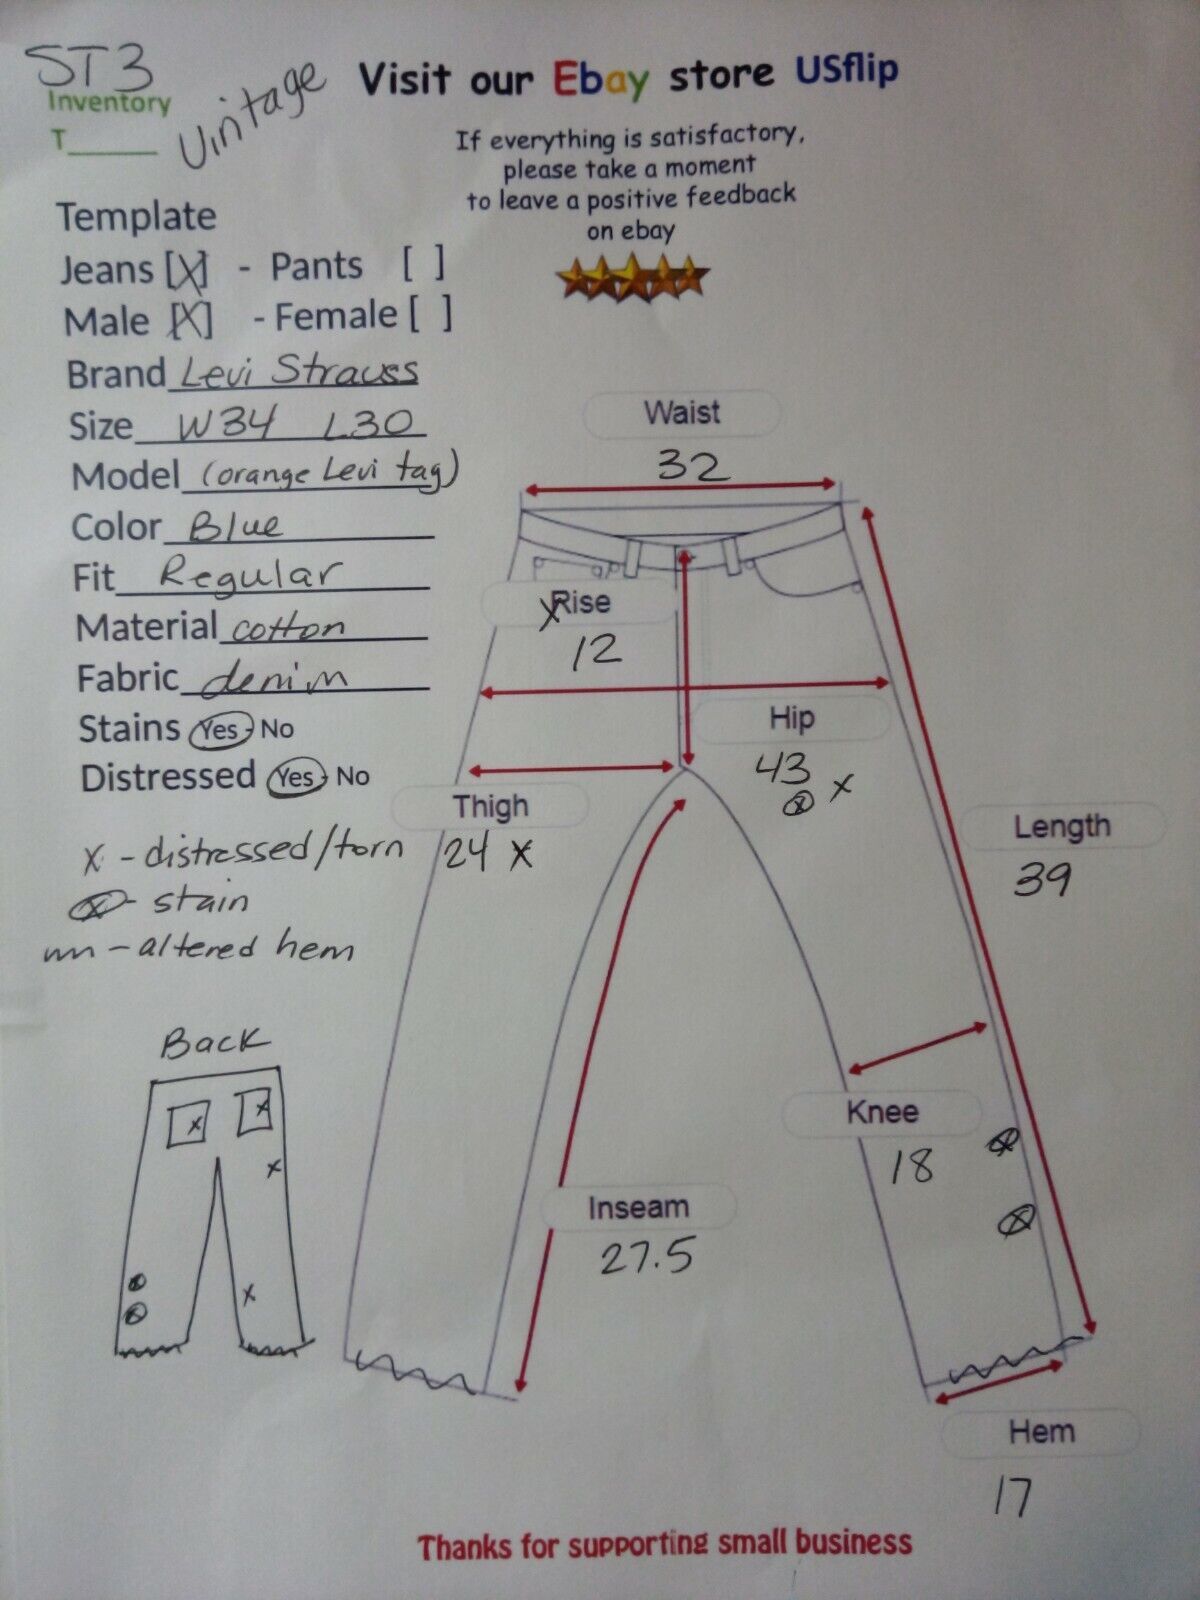 ST3
Inventory
T_____
Vintage
Visit our Ebay store USflip
If everything is satisfactory,
please take a moment
to leave a positive feedback
on ebay
Template
Jeans [X] - Pants [ ]
Male [X] - Female [ ]
Brand Levi Strauss
Size W34 L30
Model (orange Levi tag)
Color Blue
Fit Regular
Material cotton
Fabric denim
Stains Yes - No
Distressed Yes - No
x - distressed/torn
ⓧ - stain
nnn - altered hem
Waist
32
x Rise
12
Hip
43
ⓧ x
Thigh
24 x
Length
39
Knee
18
ⓧ
ⓧ
Inseam
27.5
Hem
17
Back
x x
x
x
ⓧ
ⓧ
Thanks for supporting small business